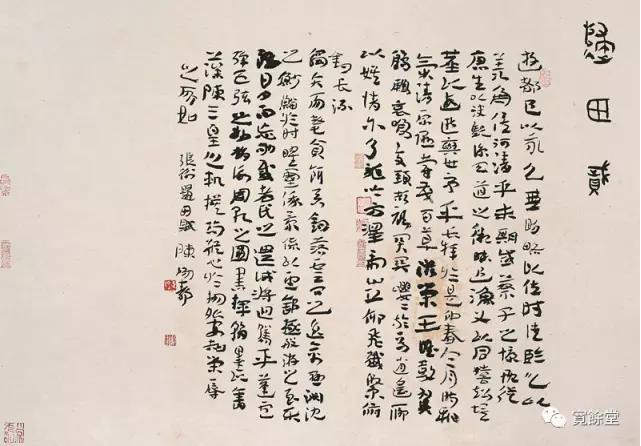 歸田賦
遊都邑以永久無明略以佐時徒臨川以
羨魚俟河清乎未期感蔡子之慷慨從
唐生以決疑諒天道之微昧追漁父以同嬉超埃
塵以遐逝與世事乎長辭於是仲春令月時和
氣清原隰鬱茂百草滋榮王雎鼓翼
鶬鶊哀鳴交頸頡頏關關嚶嚶於焉逍遙聊
以娛情尔乃龍吟方澤虎嘯山丘仰飛纖繳俯
釣長流
觸矢而斃貪餌吞鉤落雲間之逸禽懸淵沉
之魦鰡于時曜靈俄景係以望舒極般遊之至樂
雖日夕而忘劬感老氏之遺誡將迴駕乎蓬廬
彈五弦之妙指詠周孔之圖書揮翰墨以奮
藻陳三皇之軌模苟縱心於物外安知榮辱
之所如 張衡歸田賦 陳
寬餘堂